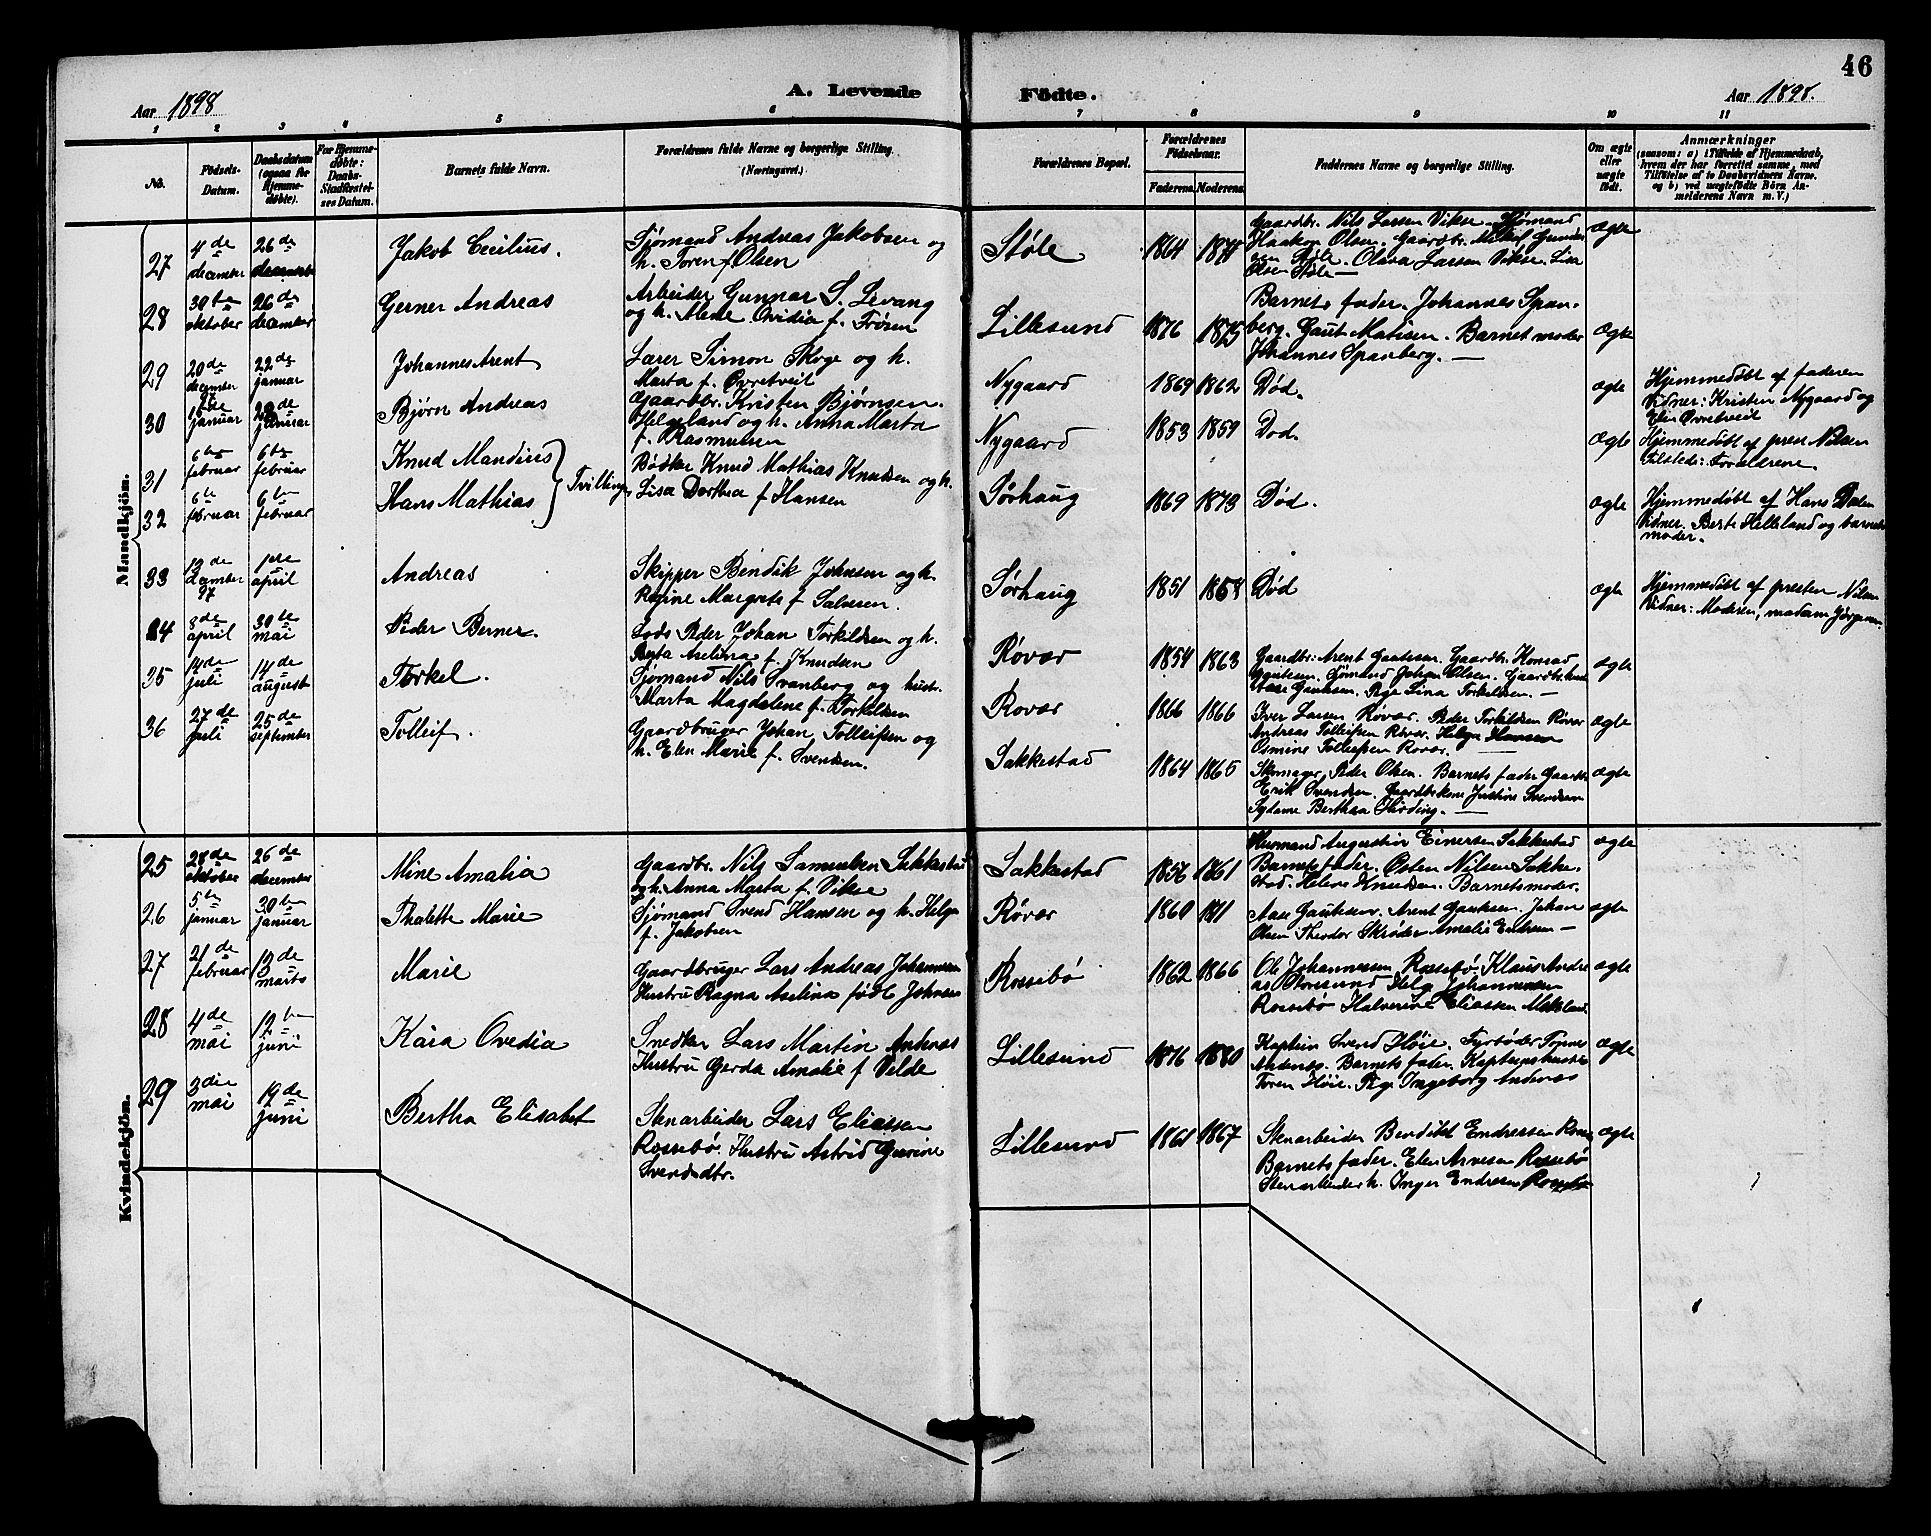 46
A. Levende Födte.
Aar 1898
Aar 1898.
1 2 3 4 5 6 7 8 9 10 11
No.
Födsels-
Datum.
Daabsdatum
(ogsaa for
Hjemme-
döbte).
For Hjemme-
döbte:
Daabs-
Stadfæstel-
ses Datum.
Barnets fulde Navn.
Forældrenes fulde Navne og borgerlige Stilling
(Næringsvei.)
Forældrenes Bopæl.
Forældrenes
Födselsaar.
Faderens. Moderens.
Faddernes Navne og borgerlige Stilling.
Om ægte
eller
uægte
födt.
Anmærkninger
(saasom: a) i Tilfælde af Hjemmedaab,
hvem der har forrettet samme, med
Tilföielse af to Daabsvidners Navne,
og b) ved uægtefödte Börn An-
melderens Navn m. V.)
Mandkjön.
27
4de
december
26de
december
Jakob Cecilius.
Sjømand Andreas Jakobsen og
h. Toren f. Olsen
Støle
1864
Gaardbr. Nils Larsen Vikse. Sjømand
Haakon Olsen. Gaardbr.
Støle. Olava Larsen Vikse. Lisa
Olsen Støle —
ægte
28
30te
oktober
26de
december
Gerner Andreas
Arbeider Gunnar S. Levang
og h. Alene Ovidia f. Trøen
Lillesund
1876 1875
Barnets fader. Johannes Span-
berg. Gaut Matisen. Barnet moder
Johannes Spanberg. —
ægte
29
20de
december
97
22de
januar
Johannes Arent
Lærer Simon Skoge og h.
Marta f. Øvretveit
Nygaard
1869 1862
Død.
ægte
Hjemmedøbt af faderen
Vidner: Kristen Nygaard og
Elen Øvretveit
30
januar
januar
Bjørn Andreas
Gaardbr. Kristen Bjørnsen
Helgeland og h. Anna Marta
f. Rasmussen
Nygaard
1853 1859
Død.
ægte
Hjemmedøbt af prest Nilsen
Tilstede: Forældrene.
31
6te
februar
6te
februar
Knud Mandius
Tvillinger
Bødker Knud Mathias Knudsen og h.
Lisa Dorthea f Hansen
Sørhaug
1869 1873
Død.
ægte
Hjemmedøbt af Hans Dalen
Vidner. Berte Helleland og barnets
moder.
32
6te
februar
6te
februar
Hans Mathias
33
13de
december
97
1ste
april
Andreas
Skipper Bendik Johnsen og h.
Regine Margrete f Salvesen.
Sørhaug
1851 1858
Død
ægte
Hjemmedøbt af presten Nilsen
Vidner: Moderen, madam Jørgensen
34
8de
april
30te
mai
Peder Berner.
Lods Peder Johan Torkildsen og h.
Berta Aselina f. Knudsen
Røvær
1854 1863
Gaardbr: Arent Gautesen. Gaardbr. Konrad
Gautesen. Sjømand Johan Olsen. Gaardbr.kone
Aase Gautesen. Pige Lina Torkildsen. —
ægte
35
14de
juli
14de
august
Torkel.
Sjømand Nils Svanberg og hustr.
Marta Magdalene f. Torkildsen
Røvær
1866 1866
Iver Larsen Røvær. Peder Torkildsen Røvær
Andreas Tolleifsen Røvær. Helga Hansen
Osmine Tolleifsen Røvær. —
ægte
36
27de
juli
25de
september
Tolleif.
Gaardbruger Johan Tolleifsen og
h. Elen Marie f. Svendsen.
Sakkestad
1864 1865
Skomager Peder Olsen. Barnets fader Gaardbr.
Erik Svendsen. Gaardbr.kone Justine Svendsen
Sydame Berthea —
ægte
Kvindekjön.
25
28de
oktober
26de
december
Mine Amalia
Gaardbr. Nils Samuelsen Sakkestad
og h. Anna Marta f. Vikse
Sakkestad
1856 1861
Husmand Augustin Einersen Sakkestad
Barnets fader. Osten Nilsen Sakke-
stad. Helene Knudsen. Barnets moder.
ægte
26
5te
januar
30te
januar
Thalette Marie
Sjømand Svend Hansen og h. Helga
f. Jakobsen
Røvær
1860
Aase Gautesen. Arent Gautesen. Johan
Olsen Theodor Skrøder Amalie Endresen —
ægte
27
21de
februar
13de
marts
Marie
Gaardbruger Lars Andreas Johannesen
Hustru Ragna Aselina født Johnsen
Rossebø
1862 1866
Ole Johannessen Rossebø. Klaus Andre
as Storesund Helga Johannessen
Rossebø Halverine Eliassen
ægte
28
4de
mai
12te
juni
Kaia Ovedia
Snedker Lars Martin Andnæs
Hustru Gerda Amalie f Velde
Lillesund
1876 1880
Kaptein Svend Høie. Fyrbøder
Andnæs. Barnets fader. Kapteins hustru
Toren Høie. Pige Ingeborg Andnæs
ægte
29
3die
mai
19de
juni
Bertha Elisabet
Stenarbeider Lars Eliassen
Rossebø. Hustru Astrid Gurine
Svendsdtr.
Lillesund
1861 1867
Stenarbeider Bendikt Endressen
Barnets fader. Elen Arnesen Rossebø
Stenarbeider h. Inger Endresen Rossebø
ægte